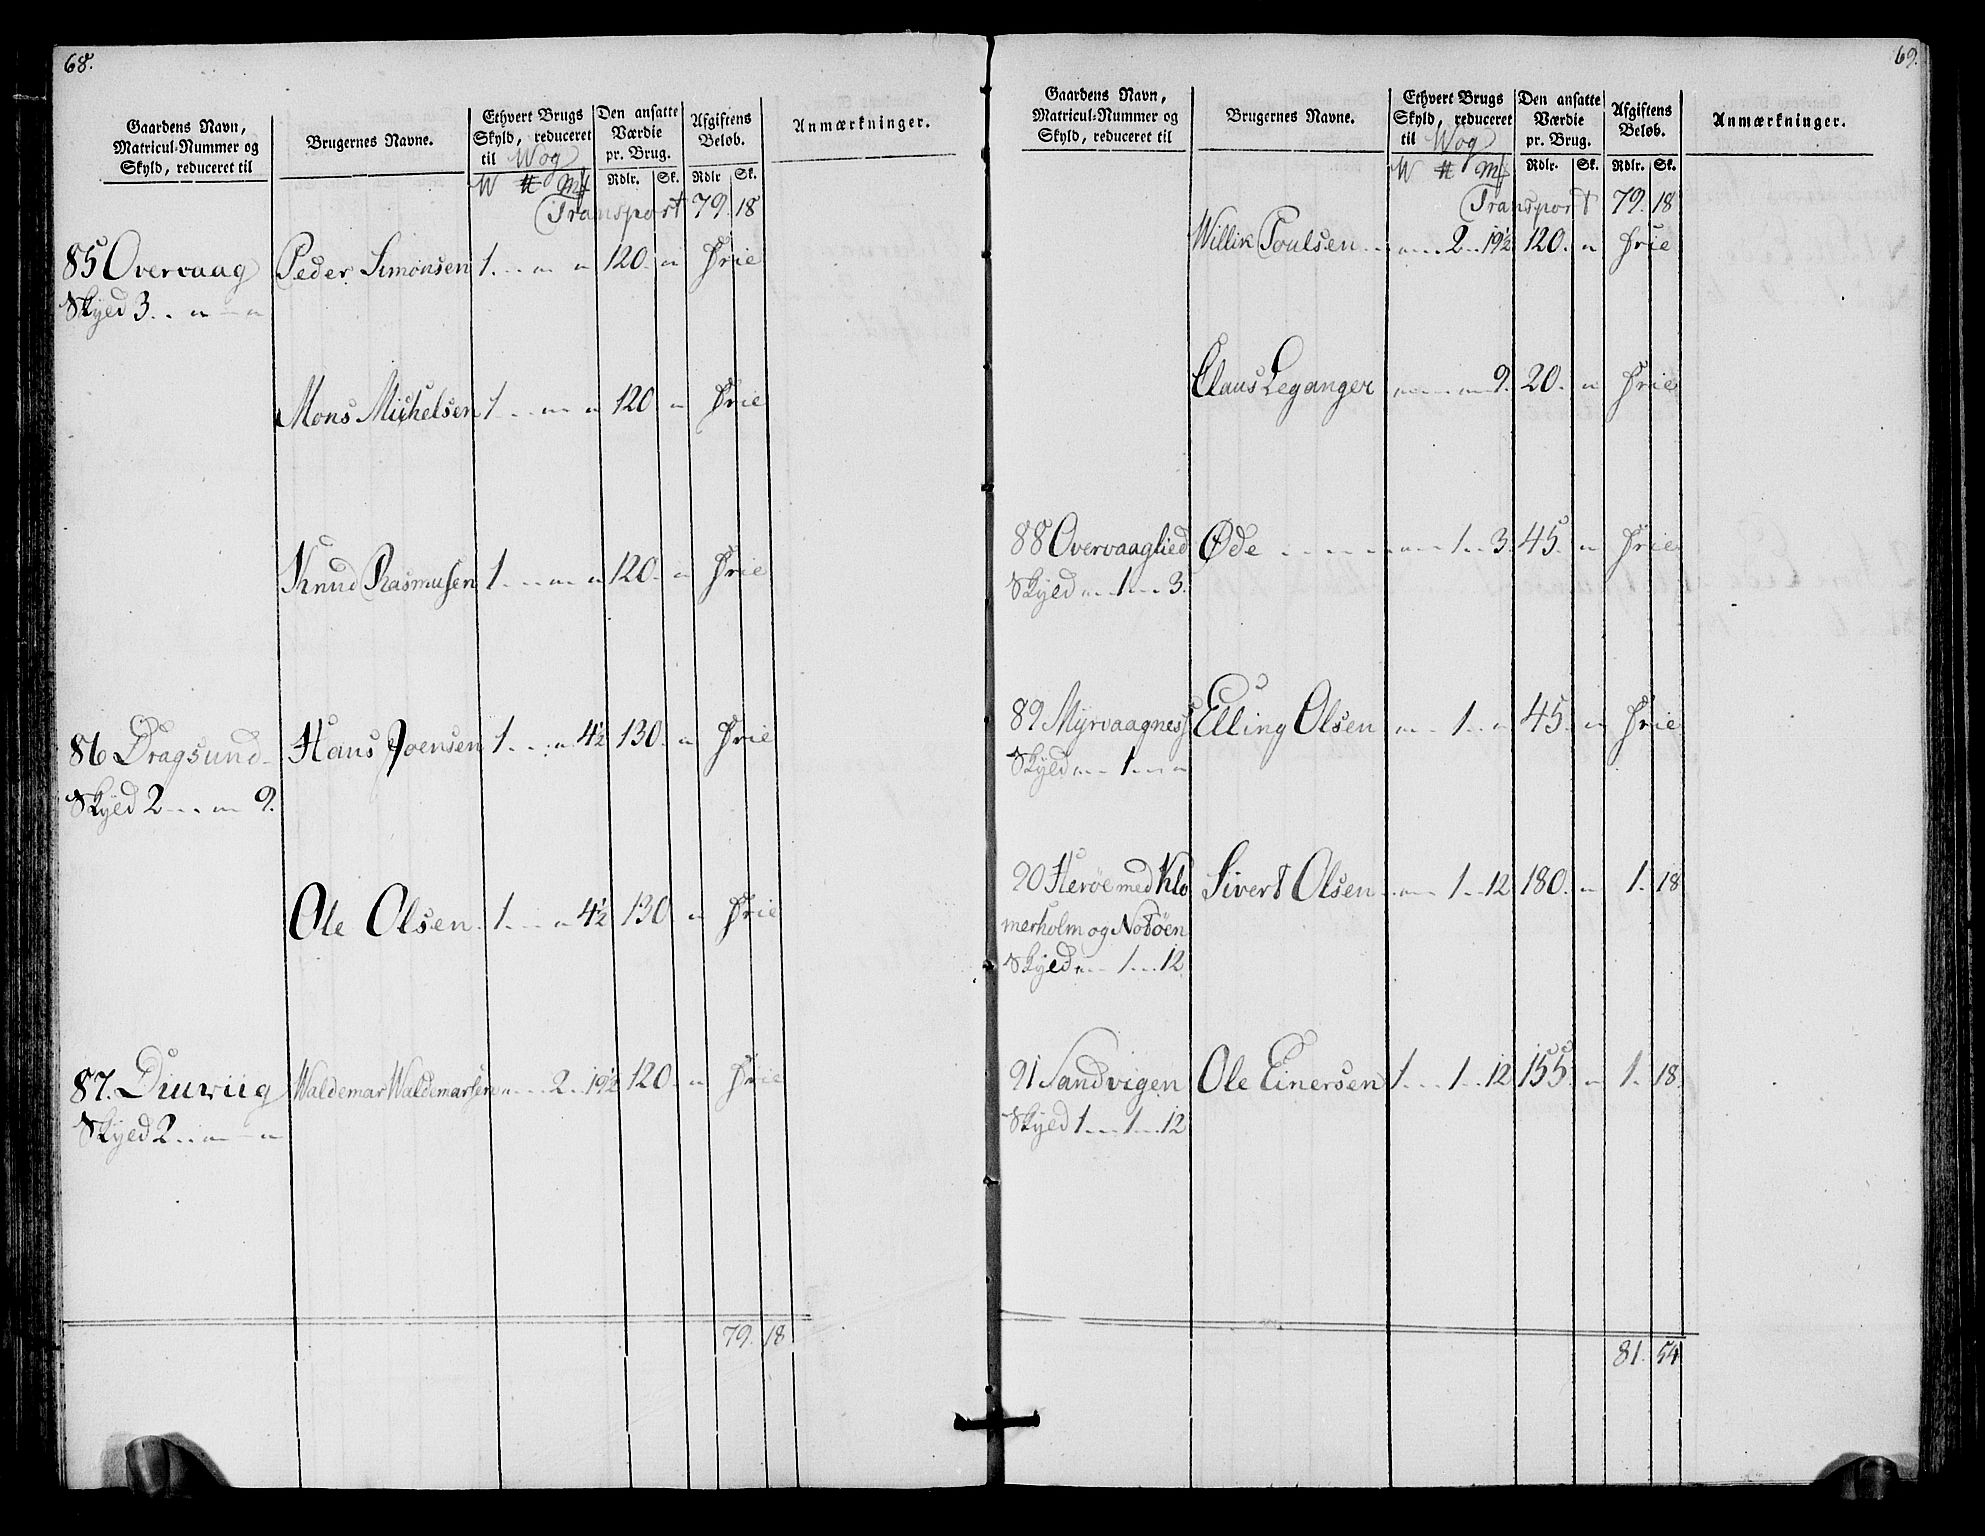 68.
Gaardens Navn, Matricul-Nummer og Skyld, reduceret til
Brugernes Navne.
Ethvert Brugs Skyld, reduceret til Wog
Den ansatte Værdie pr. Brug.
Afgiftens Beløb.
Anmærkninger.
W ₶ m₶ Rdlr. Sk. Rdlr Sk.
Transport 79. 18
85 Overvaag Peder Simonsen 1 . . . „ „ 120. „ Frie
Skyld 3 . . „ — „
Mons Michelsen 1 . . . „ „ 120 „ Frie
Knud Rasmusen 1 . . . „ „ 120. „ Frie
86 Dragsund Hans Joensen 1 . . . „ 4½ 130. „ Frie
Skyld 2 . . . „ 9.
Ole Olsen 1 . . . „ 4½ 130 „ Frie
87. Diurviig Waldemar Waldemarsen „ . . . 2 . . 19½ 120. „ Frie
Skyld 2 . . „ — „
79. 18
69.
Gaardens Navn, Matricul-Nummer og Skyld, reduceret til
Brugernes Navne.
Ethvert Brugs Skyld, reduceret til Wog
Den ansatte Værdie pr. Brug.
Afgiftens Beløb.
Anmærkninger.
W ₶ m₶ Rdlr. Sk. Rdlr. Sk.
Transport 79. 18
Willik Poulsen . . „ . . 2 . . 19½ 120. „ Frie
Claus Leganger „ . . . „ 9. 20. „ Frie
88 Overvaaglied Øde . . . . . „ . . 1 . . 3. 45. „ Frie
Skyld „ . . 1 . . . 3.
89 Myrvaagness Elling Olsen „ . . 1 . . „ 45. „ Frie
Skyld „ . . 1 . . . „
90 Herøe med Klo Sivert Olsen . . „ . . 1 . . 12 180. „ 1. 18
merholm og Notøen
Skyld „ . . 1 . . . 12.
91 Sandvigen Ole Einersen 1 . . . 1 . . 12 155. „ 1. 18.
Skyld 1 . . . 1 . . . 12
81. 54